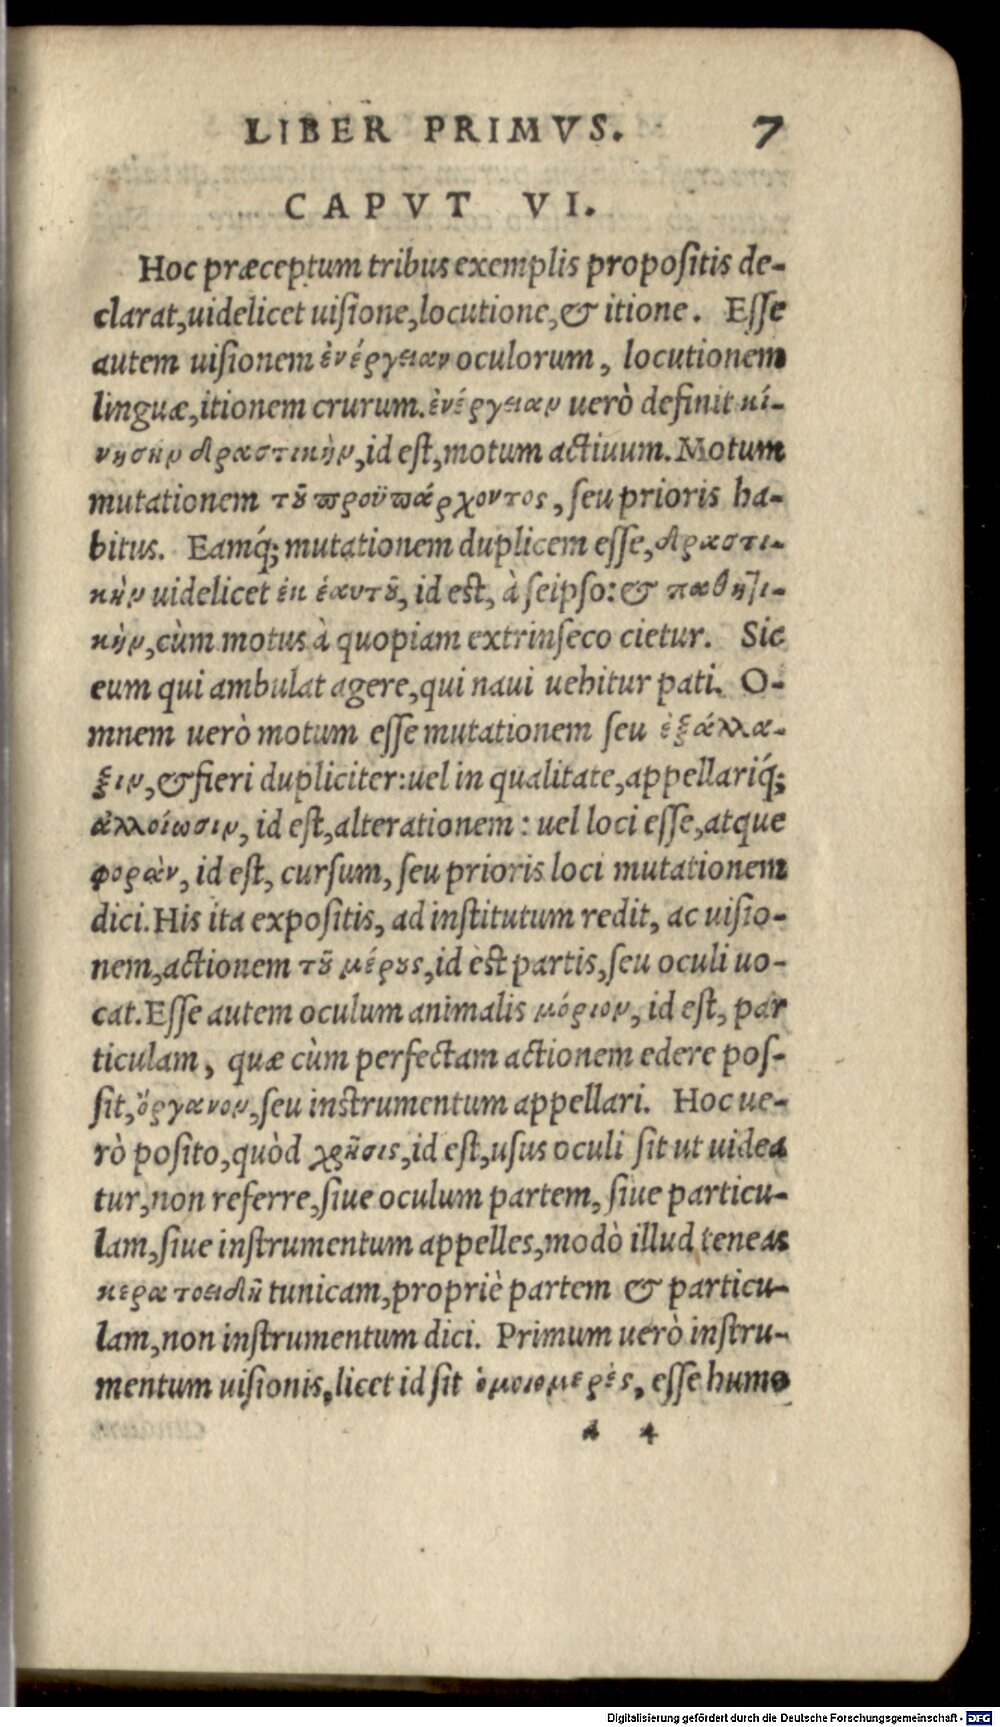 LIBER PRIMVS. 7
CAPVT VI.
Hoc præceptum tribus exemplis propoſitis de-
clarat,uidelicet uiſione,locutione,& itione. Eſſe
autem uiſionem ἐνέργειαν oculorum, locutionem
linguæ,itionem crurum.ἐνέργειαν uerò definit κί-
νησιν δραστικὴν,id eſt,motum actiuum.Motum
mutationem τȣ̃ προϋπάρχοντος, ſeu prioris ha-
bitus. Eamq́; mutationem duplicem eſſe,δραστι-
κὴν uidelicet ἐκ ἑαυτȣ̃, id eſt, à ſeipſo:& παθητι-
κὴν,cùm motus à quopiam extrinſeco cietur. Sic
eum qui ambulat agere,qui naui uehitur pati. O-
mnem uerò motum eſſe mutationem ſeu ἐξάλλα-
ξιν,& fieri dupliciter:uel in qualitate,appellariq́;
ἀλλοίωσιν, id eſt,alterationem : uel loci eſſe,atque
φορὰν, id eſt, curſum, ſeu prioris loci mutationem
dici.His ita expoſitis, ad inſtitutum redit, ac uiſio-
nem,actionem τȣ̃ μέρȣς,id est partis,ſeu oculi uo-
cat.Eſſe autem oculum animalis μόριον, id eſt, par
ticulam, quæ cùm perfectam actionem edere poſ-
ſit,ὄργανον,ſeu instrumentum appellari. Hoc ue-
rò poſito,quòd χρῆσις,id eſt,uſus oculi ſit ut uidea
tur,non referre,ſiue oculum partem, ſiue particu-
lam,ſiue inſtrumentum appelles,modò illud teneas
κερατοειδῆ tunicam,propriè partem & particu-
lam,non inſtrumentum dici. Primum uerò inſtru-
mentum uiſionis,licet id ſit ὁμοιομερὲς, eſſe humo
a 4
Digitalisierung gefördert durch die Deutsche Forschungsgemeinschaft - DFG